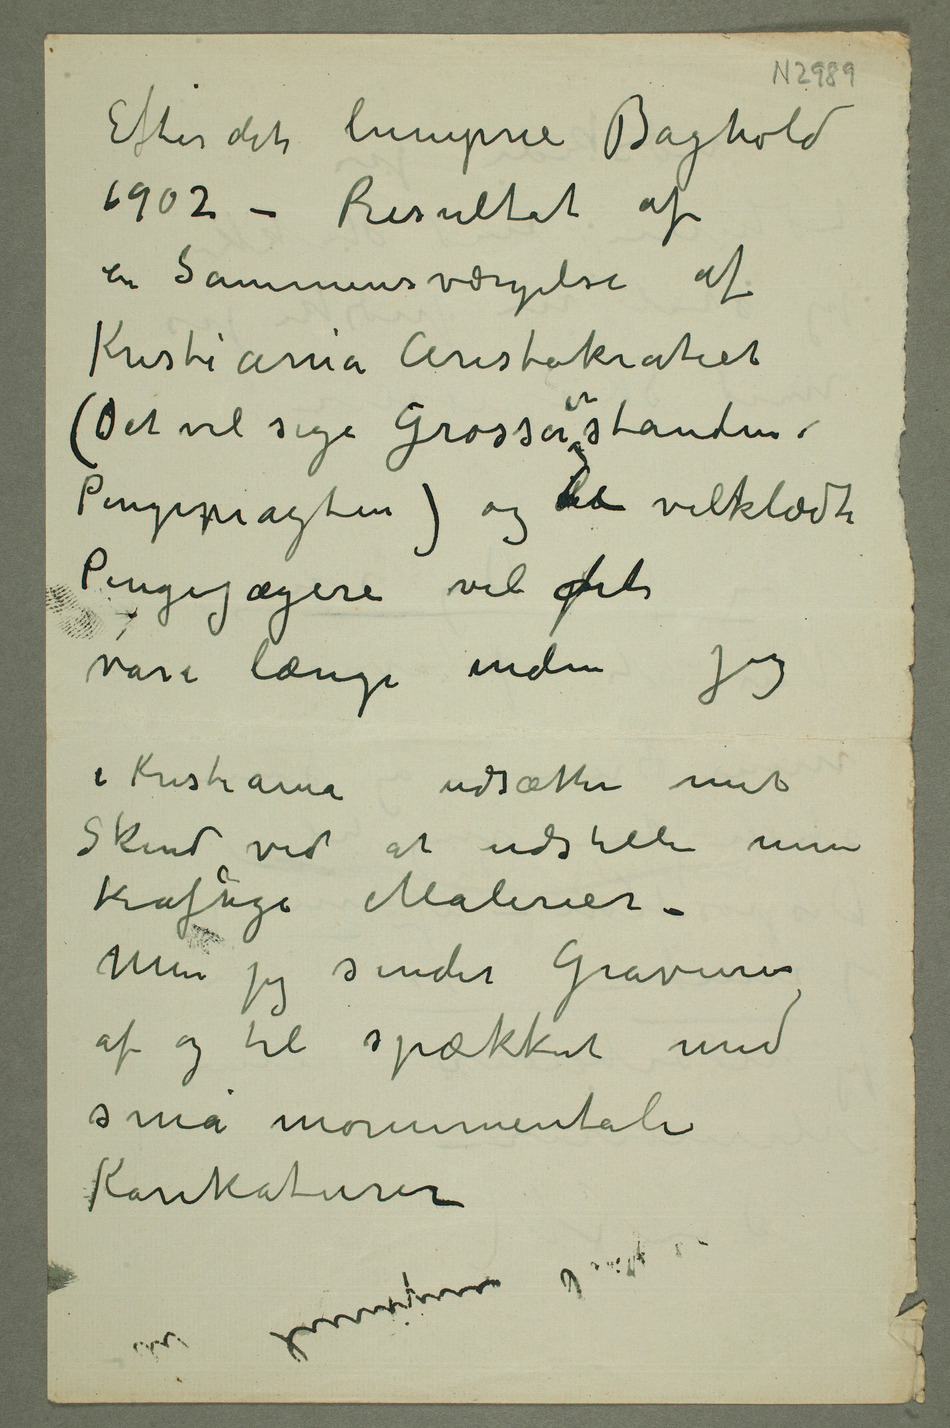 N 2989
Efter det lumpne Baghold
1902 – Resultat af
en Sammensværgelse af
Kristiania Aristokratiet
(Det vil sige Grosserer standen
Pengepragten) og velklædte
Pengejægere vil det
vare længe inden jeg
i Kristiania udsætter mit
Skind ved at udstille mine
kraftige Malerier –
Men jeg sender Gravurer
af og til spækket med
små monumentale
Karikaturer